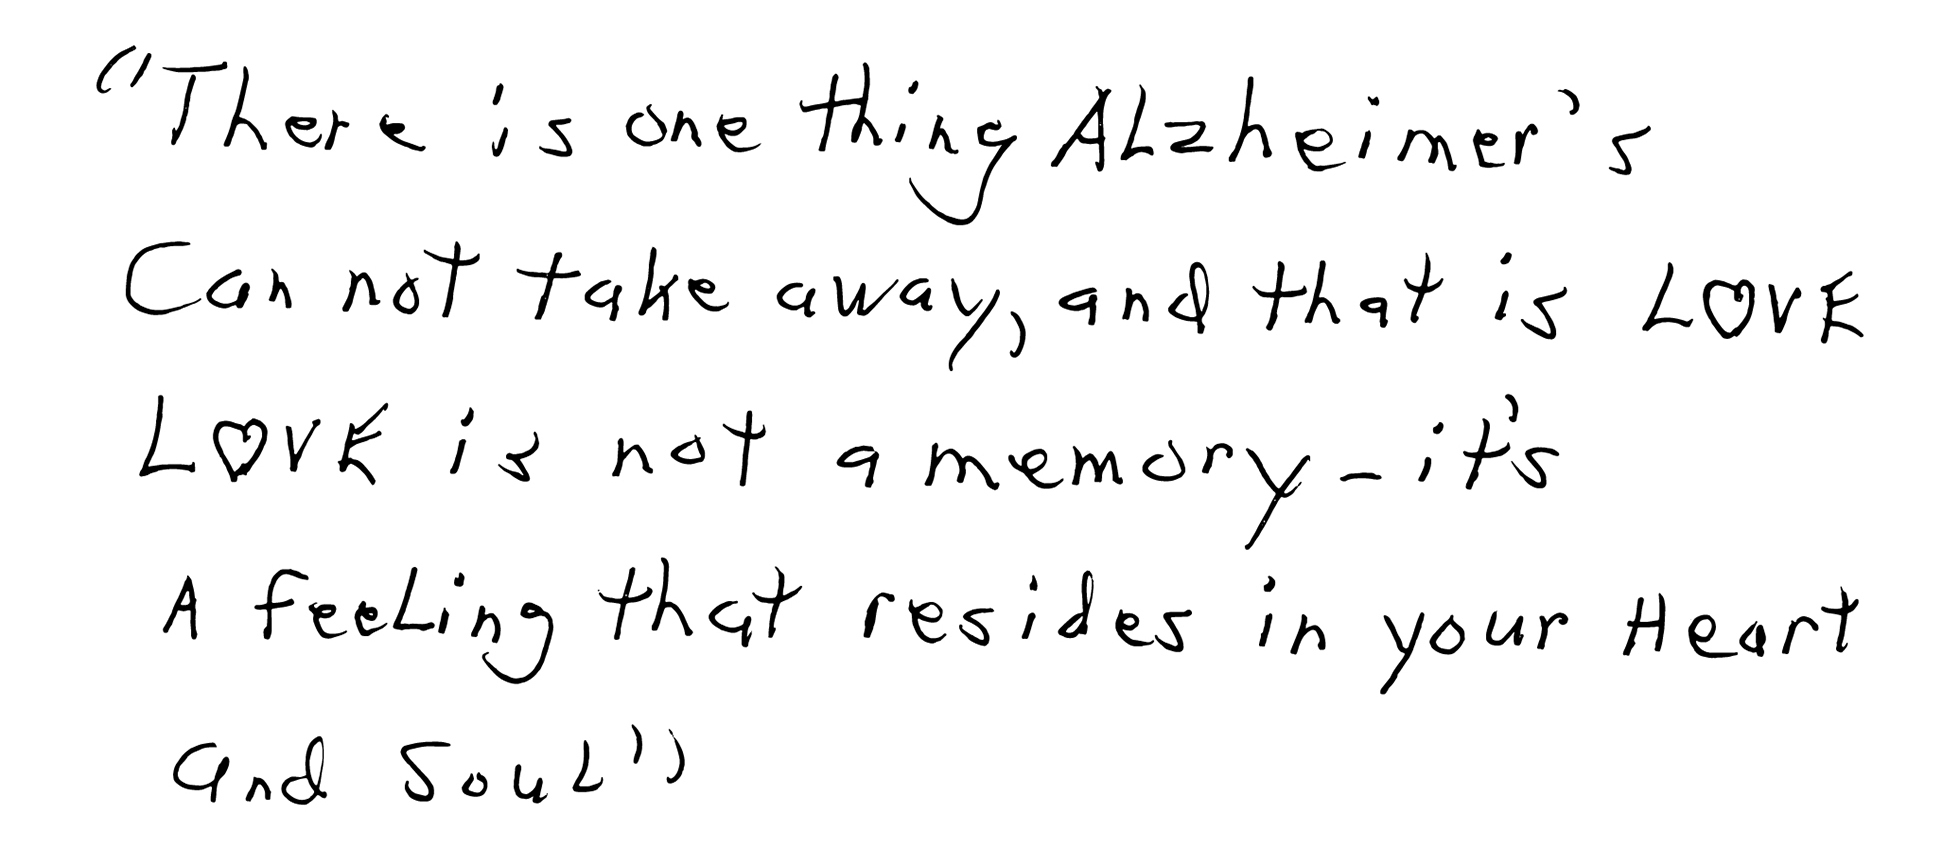 "There is one thing ALzheimer's
Can not take away, and that is LOVE
LOVE is not a memory - it's
A feeLing that resides in your Heart
and SouL"